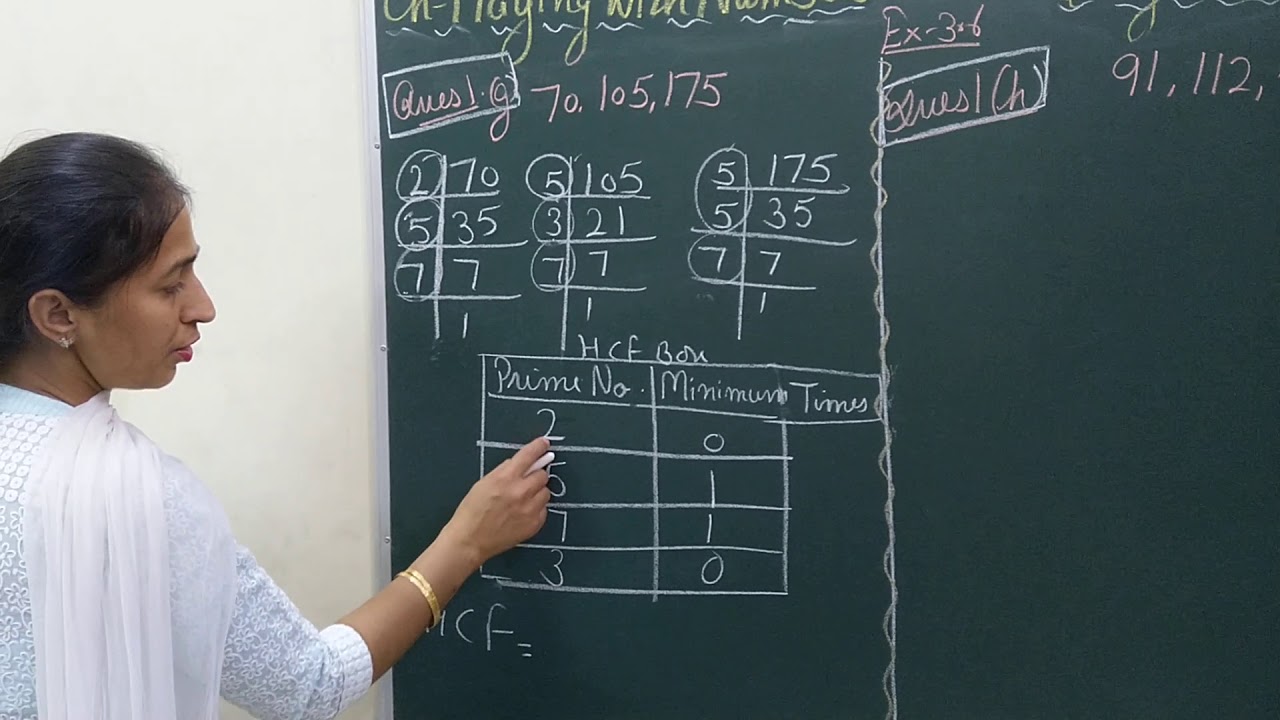 Ch-Playing with Numbers
Ex-3.6
Ques 1.(g) 70, 105, 175
Ques 1 (h) 91, 112,
2 70
5 35
7 7
1
5 105
3 21
7 7
1
5 175
5 35
7 7
1
HCF Box
Prime No. Minimum Times
2 0
5 1
7 1
3 0
HCF =